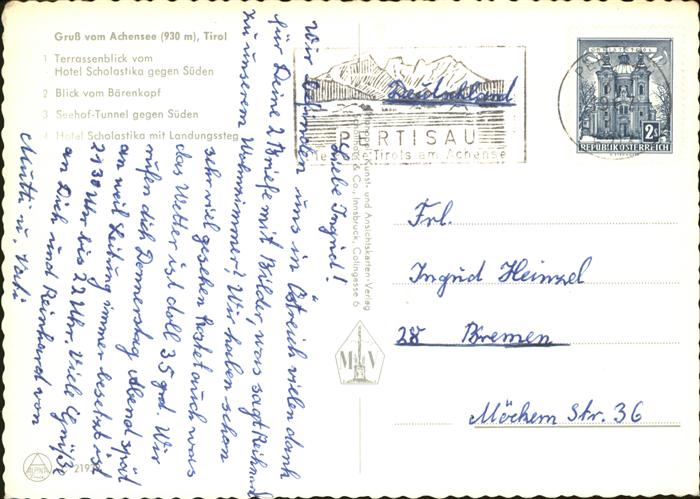 Gruß vom Achensee (930 m), Tirol
1 Terrassenblick vom
Hotel Scholastika gegen Süden
2 Blick vom Bärenkopf
3 Seehof-Tunnel gegen Süden
4 Hotel Scholastika mit Landungssteg
Liebe Ingrid!
Wir befinden uns in Östreich vielen dank
für Deine 2 Briefe mit Bilder, was sagt Reinhard
zu unserem Wohnzimmer? Wir haben schon
sehr viel gesehen kostet auch was
das Wetter ist doll 35 grd. Wir
rufen dich Donnerstag Abend spät
an weil Leitung immer besetzt ist
21³⁰ Uhr bis 22 Uhr. Viele Grüße
an Dich und Reinhard von
Mutti u. Vati
ALPINA
Kunst- und Ansichtskarten-Verlag
& Co., Innsbruck, Colingasse 6
M V
PERTISAU
Tirols am Achensee
CHRISTKINDL
2 S
REPUBLIK ÖSTERREICH
Deutschland
Frl.
Ingrid Heinzel
28 Bremen
Möckern Str. 36